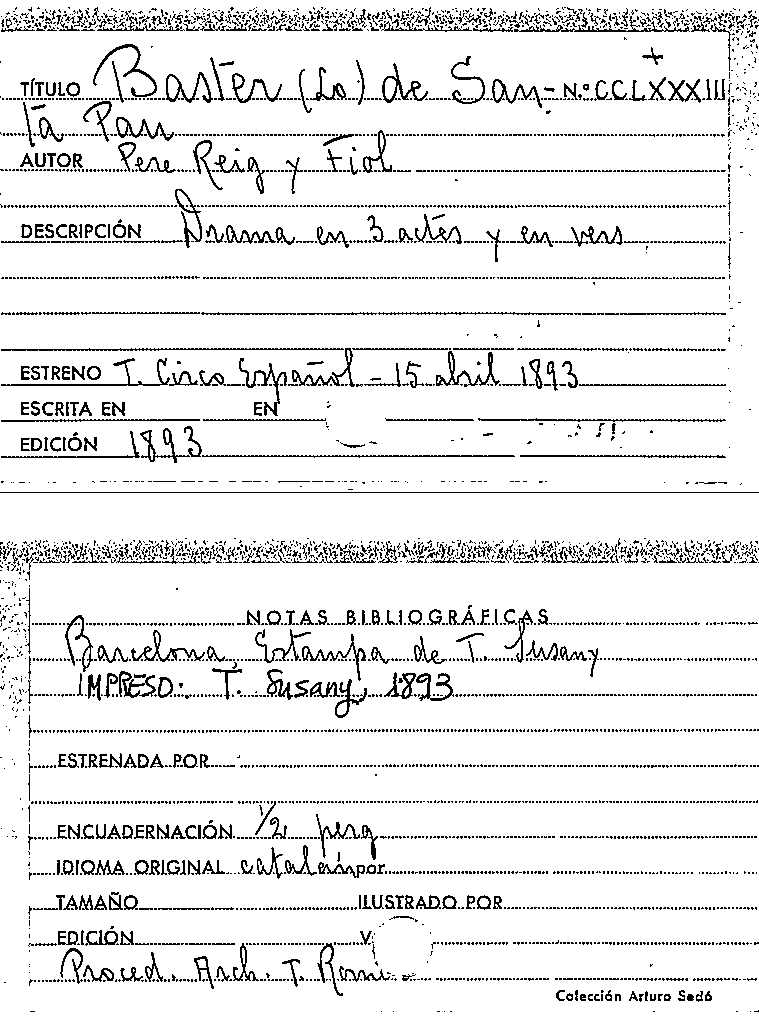 TÍTULO Baster (Lo) de San- N.º CCLXXXIII
ta Pau
AUTOR Pere Reig y Fiol
DESCRIPCIÓN Drama en 3 actes y en vers
ESTRENO T. Circo Español - 15 abril 1893
ESCRITA EN EN
EDICIÓN 1893
NOTAS BIBLIOGRÁFICAS
Barcelona, Estampa de T. Susany
IMPRESO: T. Susany, 1893
ESTRENADA POR
ENCUADERNACIÓN 1/2 perg
IDIOMA ORIGINAL catalán por
TAMAÑO ILUSTRADO POR
EDICIÓN V
Proced. Arch. T.
Colección Arturo Sedó